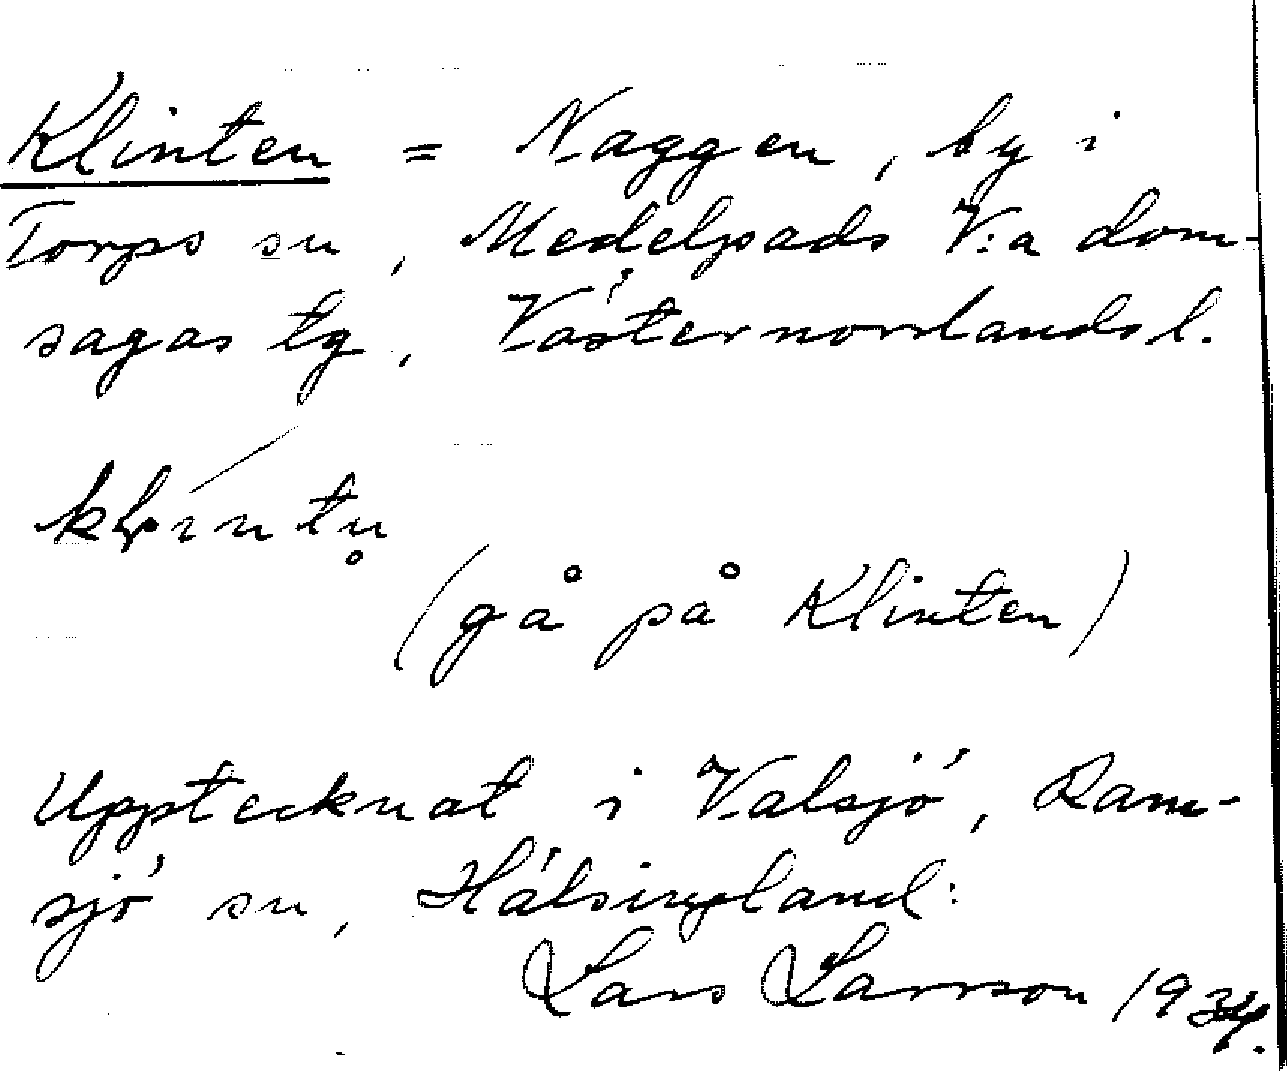 Klinten = Naggen, by i
Torps sn, Medelpads V:a dom-
sagas tg, Västernorrlands l.
(gå på Klinten)
Upptecknat i Valsjö, Ram-
sjö sn, Hälsingland:
Lars Larsson 1934.